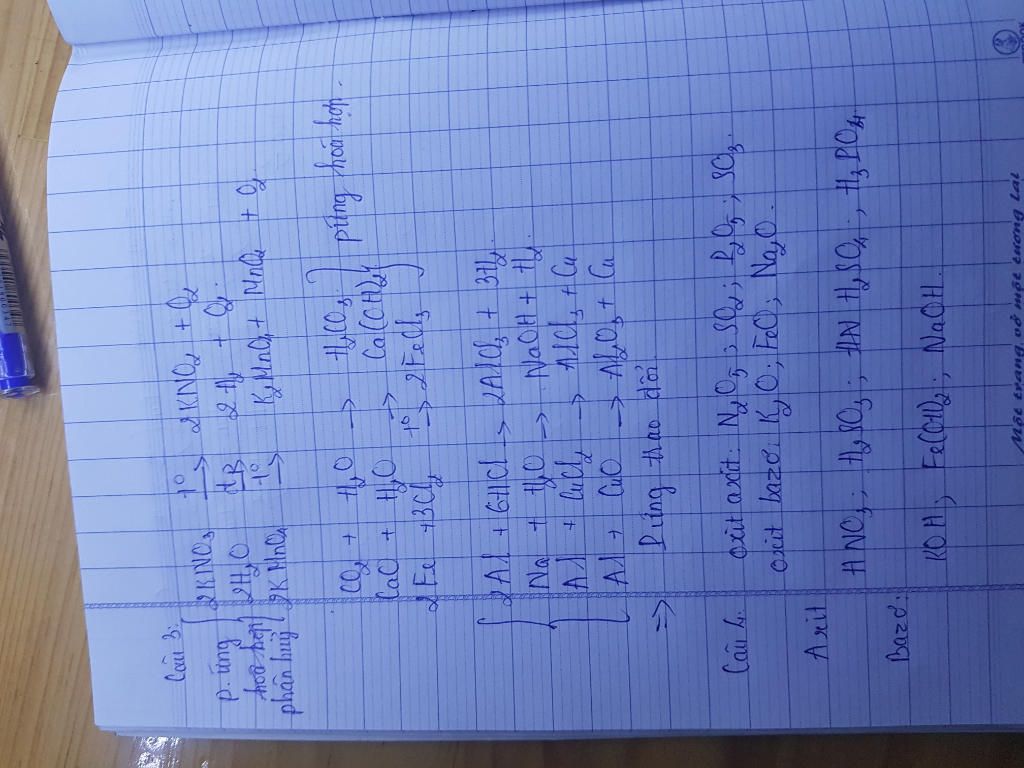 Câu 3:
p. ứng
hoá hợp
phân huỷ
2KNO3 t° → 2KNO2 + O2
2H2O → 2H2 + O2.
2KMnO4 t° → K2MnO4 + MnO2 + O2
CO2 + H2O → H2CO3.
CaO + H2O → Ca(OH)2
2Fe + 3Cl2 t° → 2FeCl3
pứng hoá hợp.
2Al + 6HCl → 2AlCl3 + 3H2.
Na + H2O → NaOH + H2.
Al + CuCl2 → AlCl3 + Cu
Al + CuO → Al2O3 + Cu
=> Pứng thao đổi.
Câu 4. oxit axit: N2O5; SO2; P2O5; SO3.
oxit bazơ: K2O; FeO; Na2O.
Axit HNO3; H2SO3; H2SO4; H3PO4.
Bazơ: KOH; Fe(OH)2; NaOH.